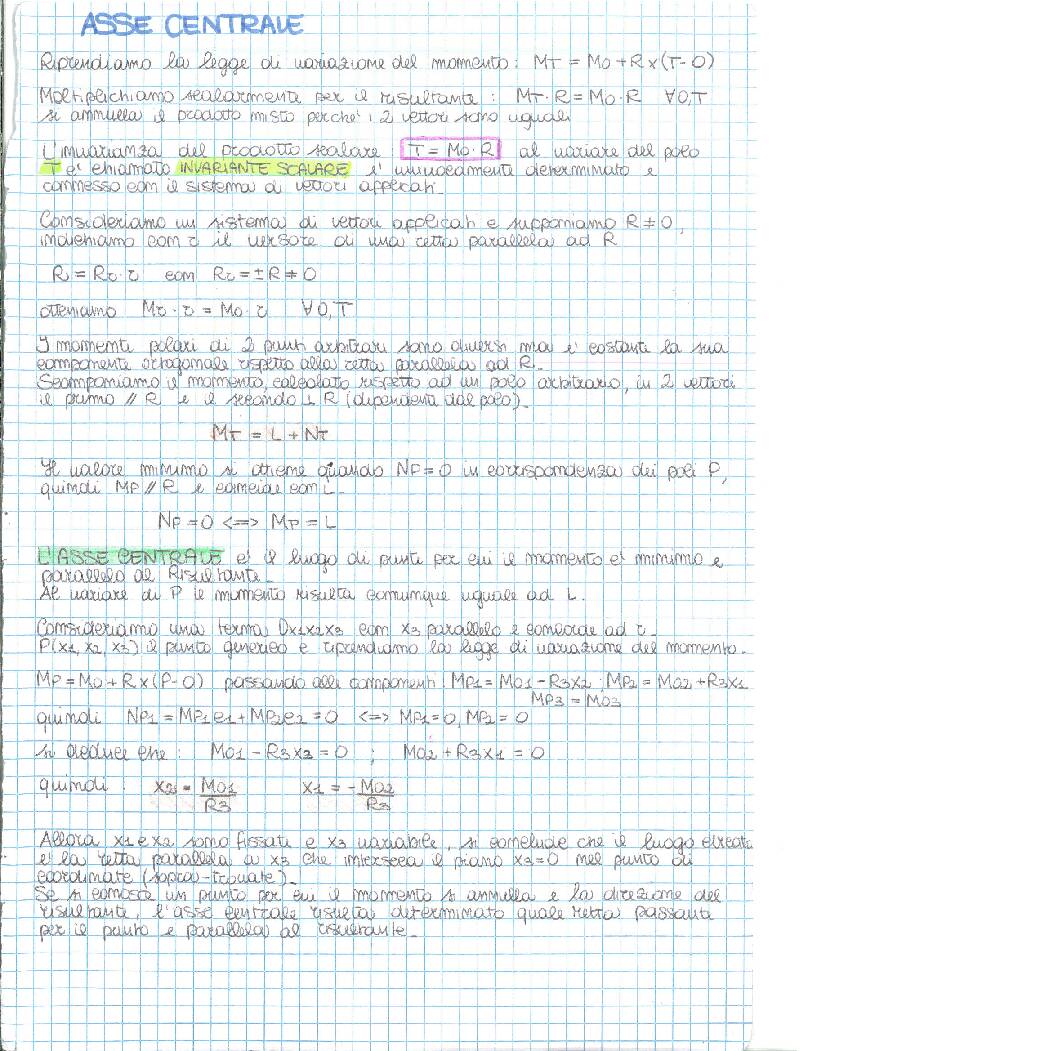 ASSE CENTRALE
Riprendiamo la legge di variazione del momento: MT = MO + R x (T-O)
Moltiplichiamo scalarmente per il risultante: MT · R = MO · R ∀O,T
si annulla il prodotto misto perché i 2 vettori sono uguali
L'invarianza del prodotto scalare T = MO · R al variare del polo
T è chiamato INVARIANTE SCALARE è univocamente determinato e
connesso con il sistema di vettori applicati.
Consideriamo un sistema di vettori applicati e supponiamo R ≠ 0,
indichiamo con r il versore di una retta parallela ad R
R = Rr · r con Rr = ±R ≠ 0
otteniamo MT · r = MO · r ∀O,T
I momenti polari di 2 punti arbitrari sono diversi ma è costante la sua
componente ortogonale rispetto alla retta parallela ad R.
Scomponiamo il momento, calcolato rispetto ad un polo arbitrario, in 2 vettori
il primo // R e il secondo ⊥ R (dipendenti dal polo).
MT = L + NT
Il valore minimo si ottiene quando NP = 0 in corrispondenza dei poli P,
quindi MP // R e coincide con L.
NP = 0 <=> MP = L
L'ASSE CENTRALE è il luogo di punti per cui il momento è minimo e
parallelo al Risultante.
Al variare di P il momento risulta comunque uguale ad L.
Consideriamo una terna Ox1x2x3 con x3 parallelo e concorde ad r.
P(x1, x2, x3) il punto generico e riprendiamo la legge di variazione del momento.
MP = MO + R x (P-O) passando alle componenti: MP1 = MO1 - R3x2 ; MP2 = MO2 + R3x1
MP3 = MO3
quindi NP1 = MP1e1 + MP2e2 = 0 <=> MP1 = 0, MP2 = 0
si deduce che: MO1 - R3x2 = 0 ; MO2 + R3x1 = 0
quindi: x2 = MO1/R3 x1 = - MO2/R3
Allora x1 e x2 sono fissati e x3 variabile, si conclude che il luogo
è la retta parallela a x3 che interseca il piano x3=0 nel punto di
coordinate (sopra-trovate).
Se si conosce un punto per cui il momento si annulla e la direzione del
risultante, l'asse centrale risulta determinato quale retta passante
per il punto e parallela al risultante.